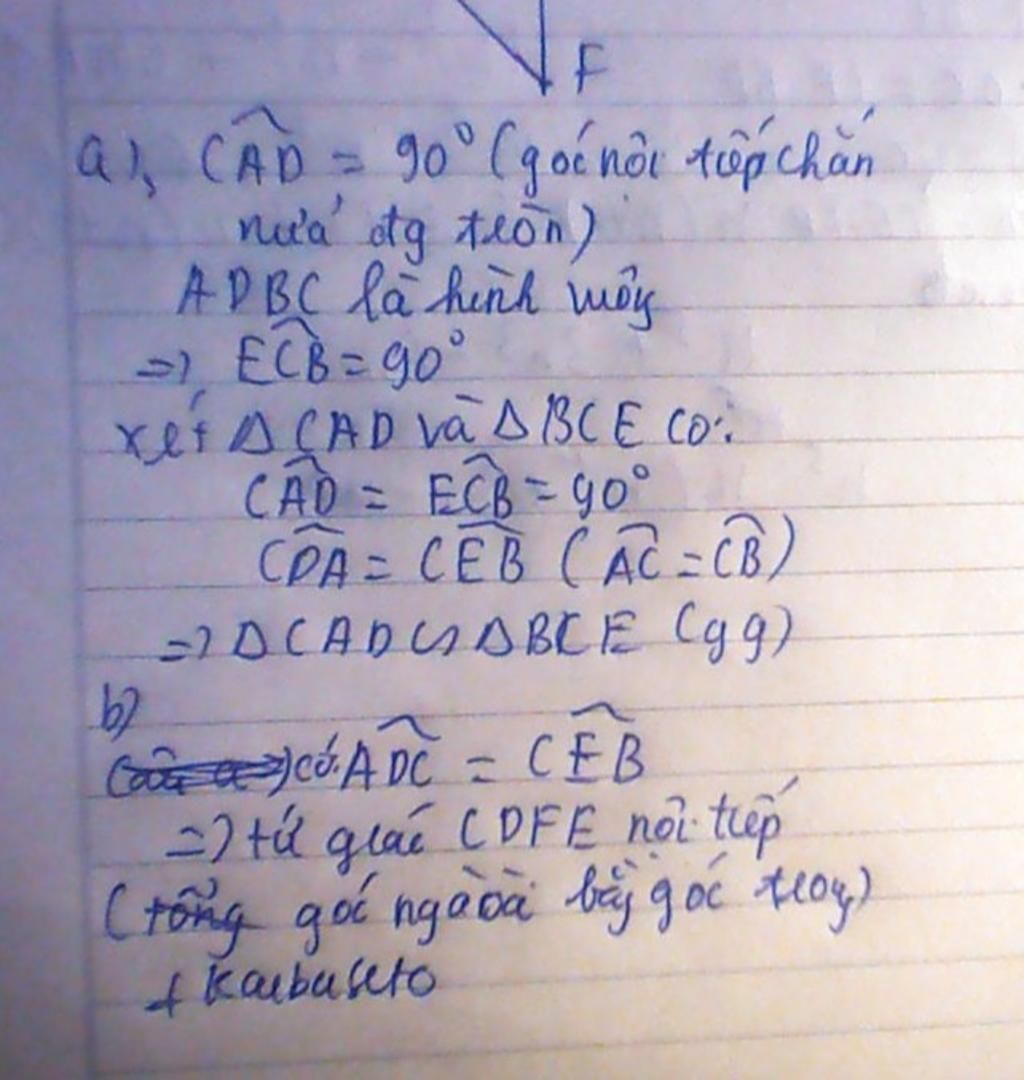 F
a), CAD = 90° (góc nội tiếp chắn
nửa đtg tròn)
ADBC là hình vuông
=> ECB = 90°
xét Δ CAD và Δ BCE có:
CAD = ECB = 90°
CDA = CEB (AC = CB)
=> Δ CAD ∽ Δ BCE (gg)
b)
có: ADC = CEB
=> tứ giác CDFE nội tiếp
(tổng góc ngoài bằng góc trong)